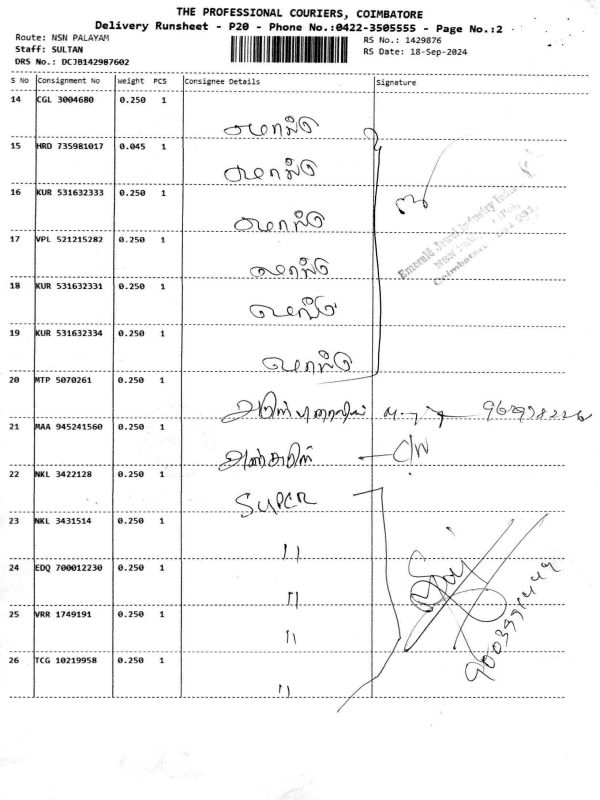 THE PROFESSIONAL COURIERS, COIMBATORE
Delivery Runsheet - P20 - Phone No.:0422-3505555 - Page No.:2
Route: NSN PALAYAM
Staff: SULTAN
DRS No.: DCJB142987602
RS No.: 1429876
RS Date: 18-Sep-2024
S No Consignment No weight PCS Consignee Details Signature
14 CGL 3004680 0.250 1
15 HRD 735981017 0.045 1
16 KUR 531632333 0.250 1
17 VPL 521215282 0.250 1
18 KUR 531632331 0.250 1
19 KUR 531632334 0.250 1
Emerald Jewel Industry
Coimbatore
20 MTP 5070261 0.250 1
21 MAA 945241560 0.250 1 C/W
22 NKL 3422128 0.250 1 SUPER
23 NKL 3431514 0.250 1 "
24 EDQ 700012230 0.250 1 "
25 VRR 1749191 0.250 1 "
26 TCG 10219958 0.250 1 "